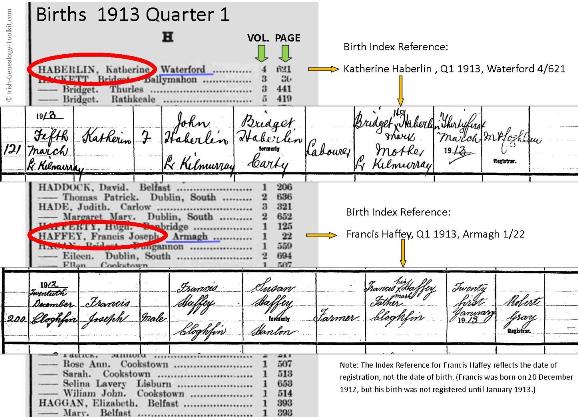 Births 1913 Quarter 1
© Irish-Genealogy-Toolkit.com
H
VOL. PAGE
HABERLIN, Katherine Waterford 4 621
HACKETT, Bridget. Ballymahon 3
— Bridget. Thurles 3 441
— Bridget. Rathkeale 5 419
Birth Index Reference:
Katherine Haberlin , Q1 1913, Waterford 4/621
121
1913
Fifth
March
R. Kilmurray
Katherin
F
John
Haberlin
R. Kilmurray
Bridget
Haberlin
formerly
Carty
Labourer
Bridget Haberlin
her
Mark
Mother
R. Kilmurray
Thirty first
March
1913
Registrar.
HADDOCK, David. Belfast 1 206
— Thomas Patrick. Dublin, South 2 636
HADE, Judith. Carlow 3 321
— Margaret Mary. Dublin, South 2 652
HAFFERTY, Hugh. Banbridge 1 125
HAFFEY, Francis Joseph Armagh 1 22
Dungannon 1 559
— Eileen. Dublin, South 2 694
— Ellen. Cookstown 1 507
Birth Index Reference:
Francis Haffey, Q1 1913, Armagh 1/22
200
1912
Twentieth
December
Cloghfin
Francis
Joseph
Male
Francis
Haffey
Cloghfin
Susan
Haffey
formerly
Hanlon
Farmer
Francis Haffey
his
mark
Father
Cloghfin
Twenty
first
January
1913
Robert
Gray
Registrar.
— Patrick. Milford 2 217
— Rose Ann. Cookstown 1 507
— Sarah. Cookstown 1 513
— Selina Lavery Lisburn 1 653
— William John. Cookstown 1 514
HAGGAN, Elizabeth. Belfast 1 393
— Mary. Belfast 1 393
Note: The Index Reference for Francis Haffey reflects the date of
registration, not the date of birth. (Francis was born on 20 December
1912, but his birth was not registered until January 1913.)